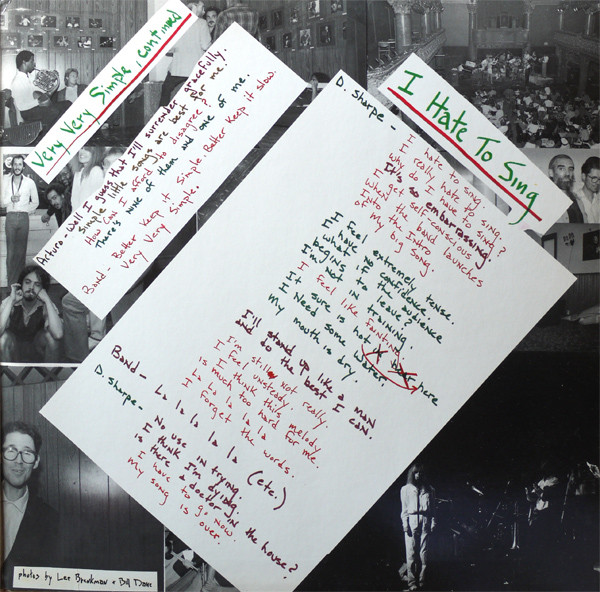 Very Very Simple, continued
Arturo - Well I guess that I'll surrender gracefully.
Simple little songs are best for me.
How can I afford to disagree?
There's nine of them and one of me.
Band - Better keep it Simple - Better keep it slow.
Very Very Simple.
I Hate To Sing
D. Sharpe -
I hate to sing.
I really hate to sing.
Why do I have to sing?
It's so embarrassing
I get self conscious
When the band launches
Into the intro
Of my big song.
I feel extremely tense.
I have no confidence.
What if the audience
begins to leave?
I'm not in training.
I feel like fainting.
It sure is hot in here
I Need some water
My mouth is dry.
I'll stand up like a man
and do the best I can.
I'm still not really.
I feel unsteady.
I think this melody
is much too hard for me.
La la la la la
I forget the words.
Band - La la la la la (etc.)
D. Sharpe -
No use in trying.
I think I'm dying.
Is there a doctor in the house?
I have to go now.
My song is over.
photos by Lee Brenkman + Bill